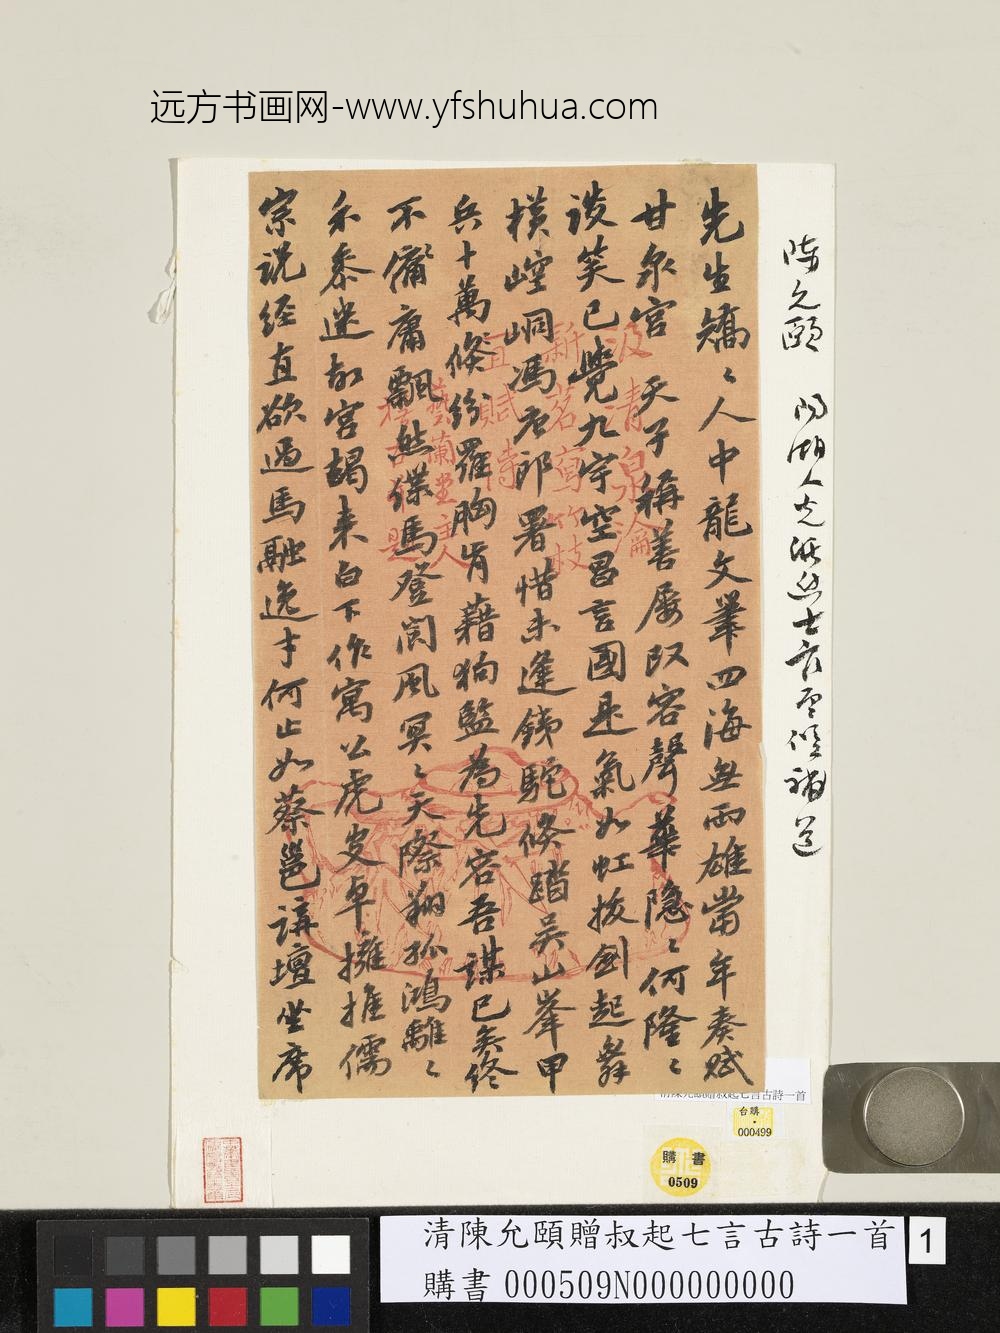 远方书画网-www.yfshuhua.com
先生矯〻人中龍文筆四海無兩雄當年奏賦
甘泉宮天子稱善屢改容聲華隱〻何隆〻
談笑已覺九宇空昌言國是氣如虹拔劍起舞
橫崆峒馮唐郎署惜未逢銕駝倏踏吳山峯甲
兵十萬倏紛羅胸肯藉狗監為先容吾謀已矣終
不備庸飄然緤馬登閬風冥〻天際翔孤鴻離〻
禾黍迷故宮朅来白下作寓公虎皮卓擁推儒
宗說經直欲過馬融逸才何止如蔡邕講壇坐席
汲清泉瀹
新茗寫竹枝
宜賦詩
藝蘭主人
陳允頤
陽湖人
清陳允頤贈叔起七言古詩一首
台購
000499
購書
0509
清陳允頤贈叔起七言古詩一首
購書 000509N000000000
1